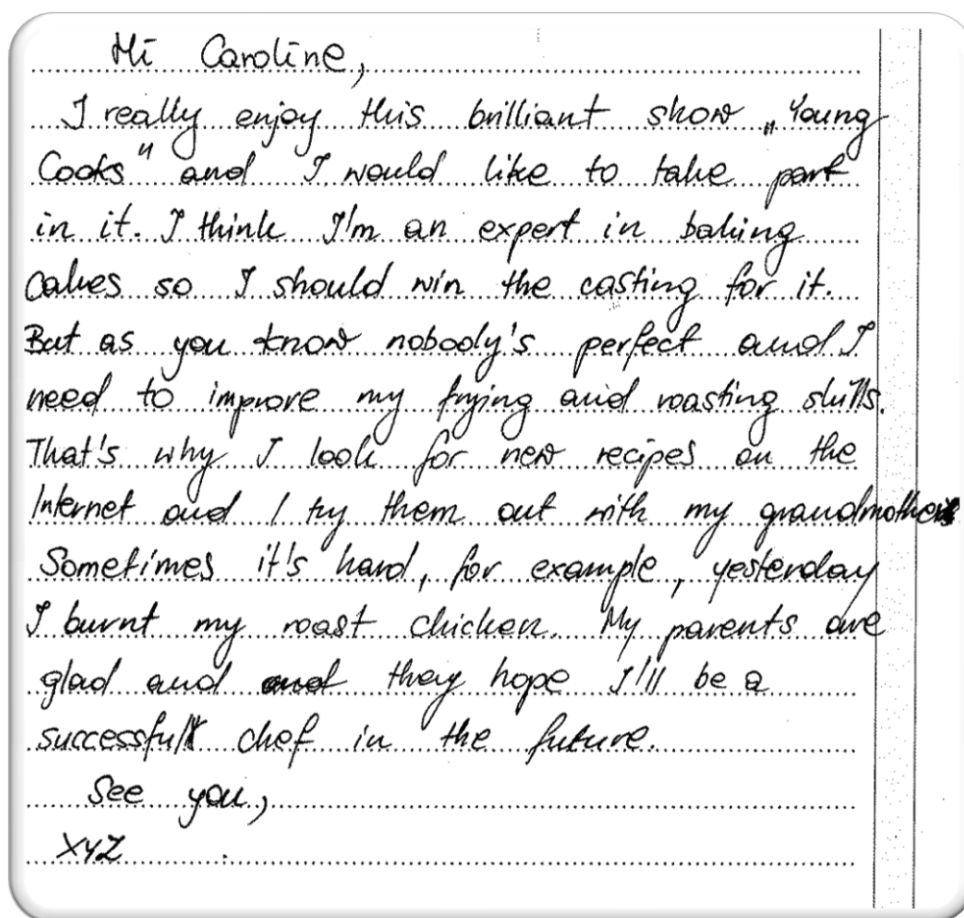 Hi Caroline,
I really enjoy this brilliant show „Young
Cooks" and I would like to take part
in it. I think I'm an expert in baking
cakes so I should win the casting for it.
But as you know nobody's perfect and I
need to improve my frying and roasting skills.
That's why I look for new recipes on the
Internet and I try them out with my grandmother
Sometimes it's hard, for example, yesterday
I burnt my roast chicken. My parents are
glad and they hope I'll be a
successful chef in the future.
See you,
XYZ